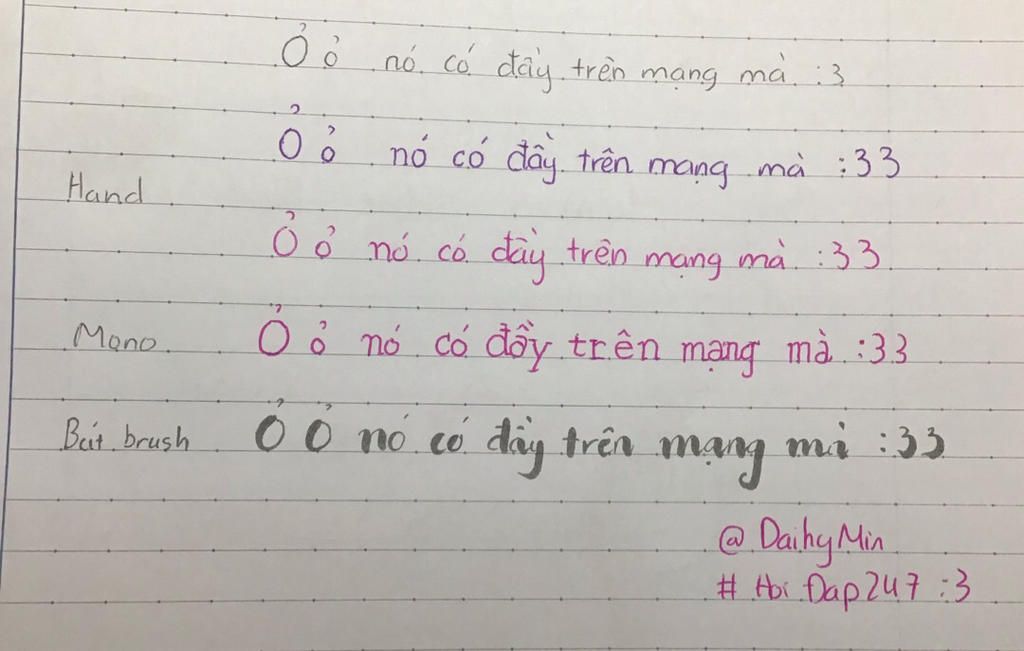 Ỏ ỏ nó có đầy trên mạng mà :3
Ỏ ỏ nó có đầy trên mạng mà :33
Hand
Ỏ ỏ nó có đầy trên mạng mà :33
Mono Ỏ ỏ nó có đầy trên mạng mà :33
Bút brush Ỏ Ỏ nó có đầy trên mạng mà :33
@DaihyMin
# Hoi Đap247 :3